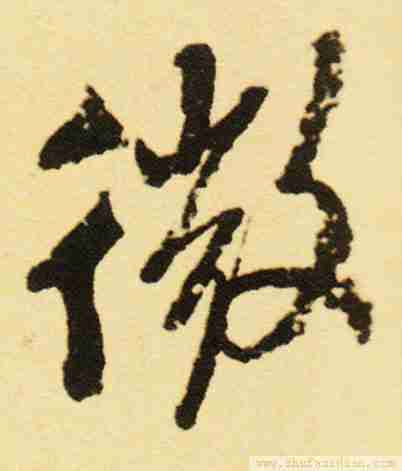 微
www.shufazidian.com